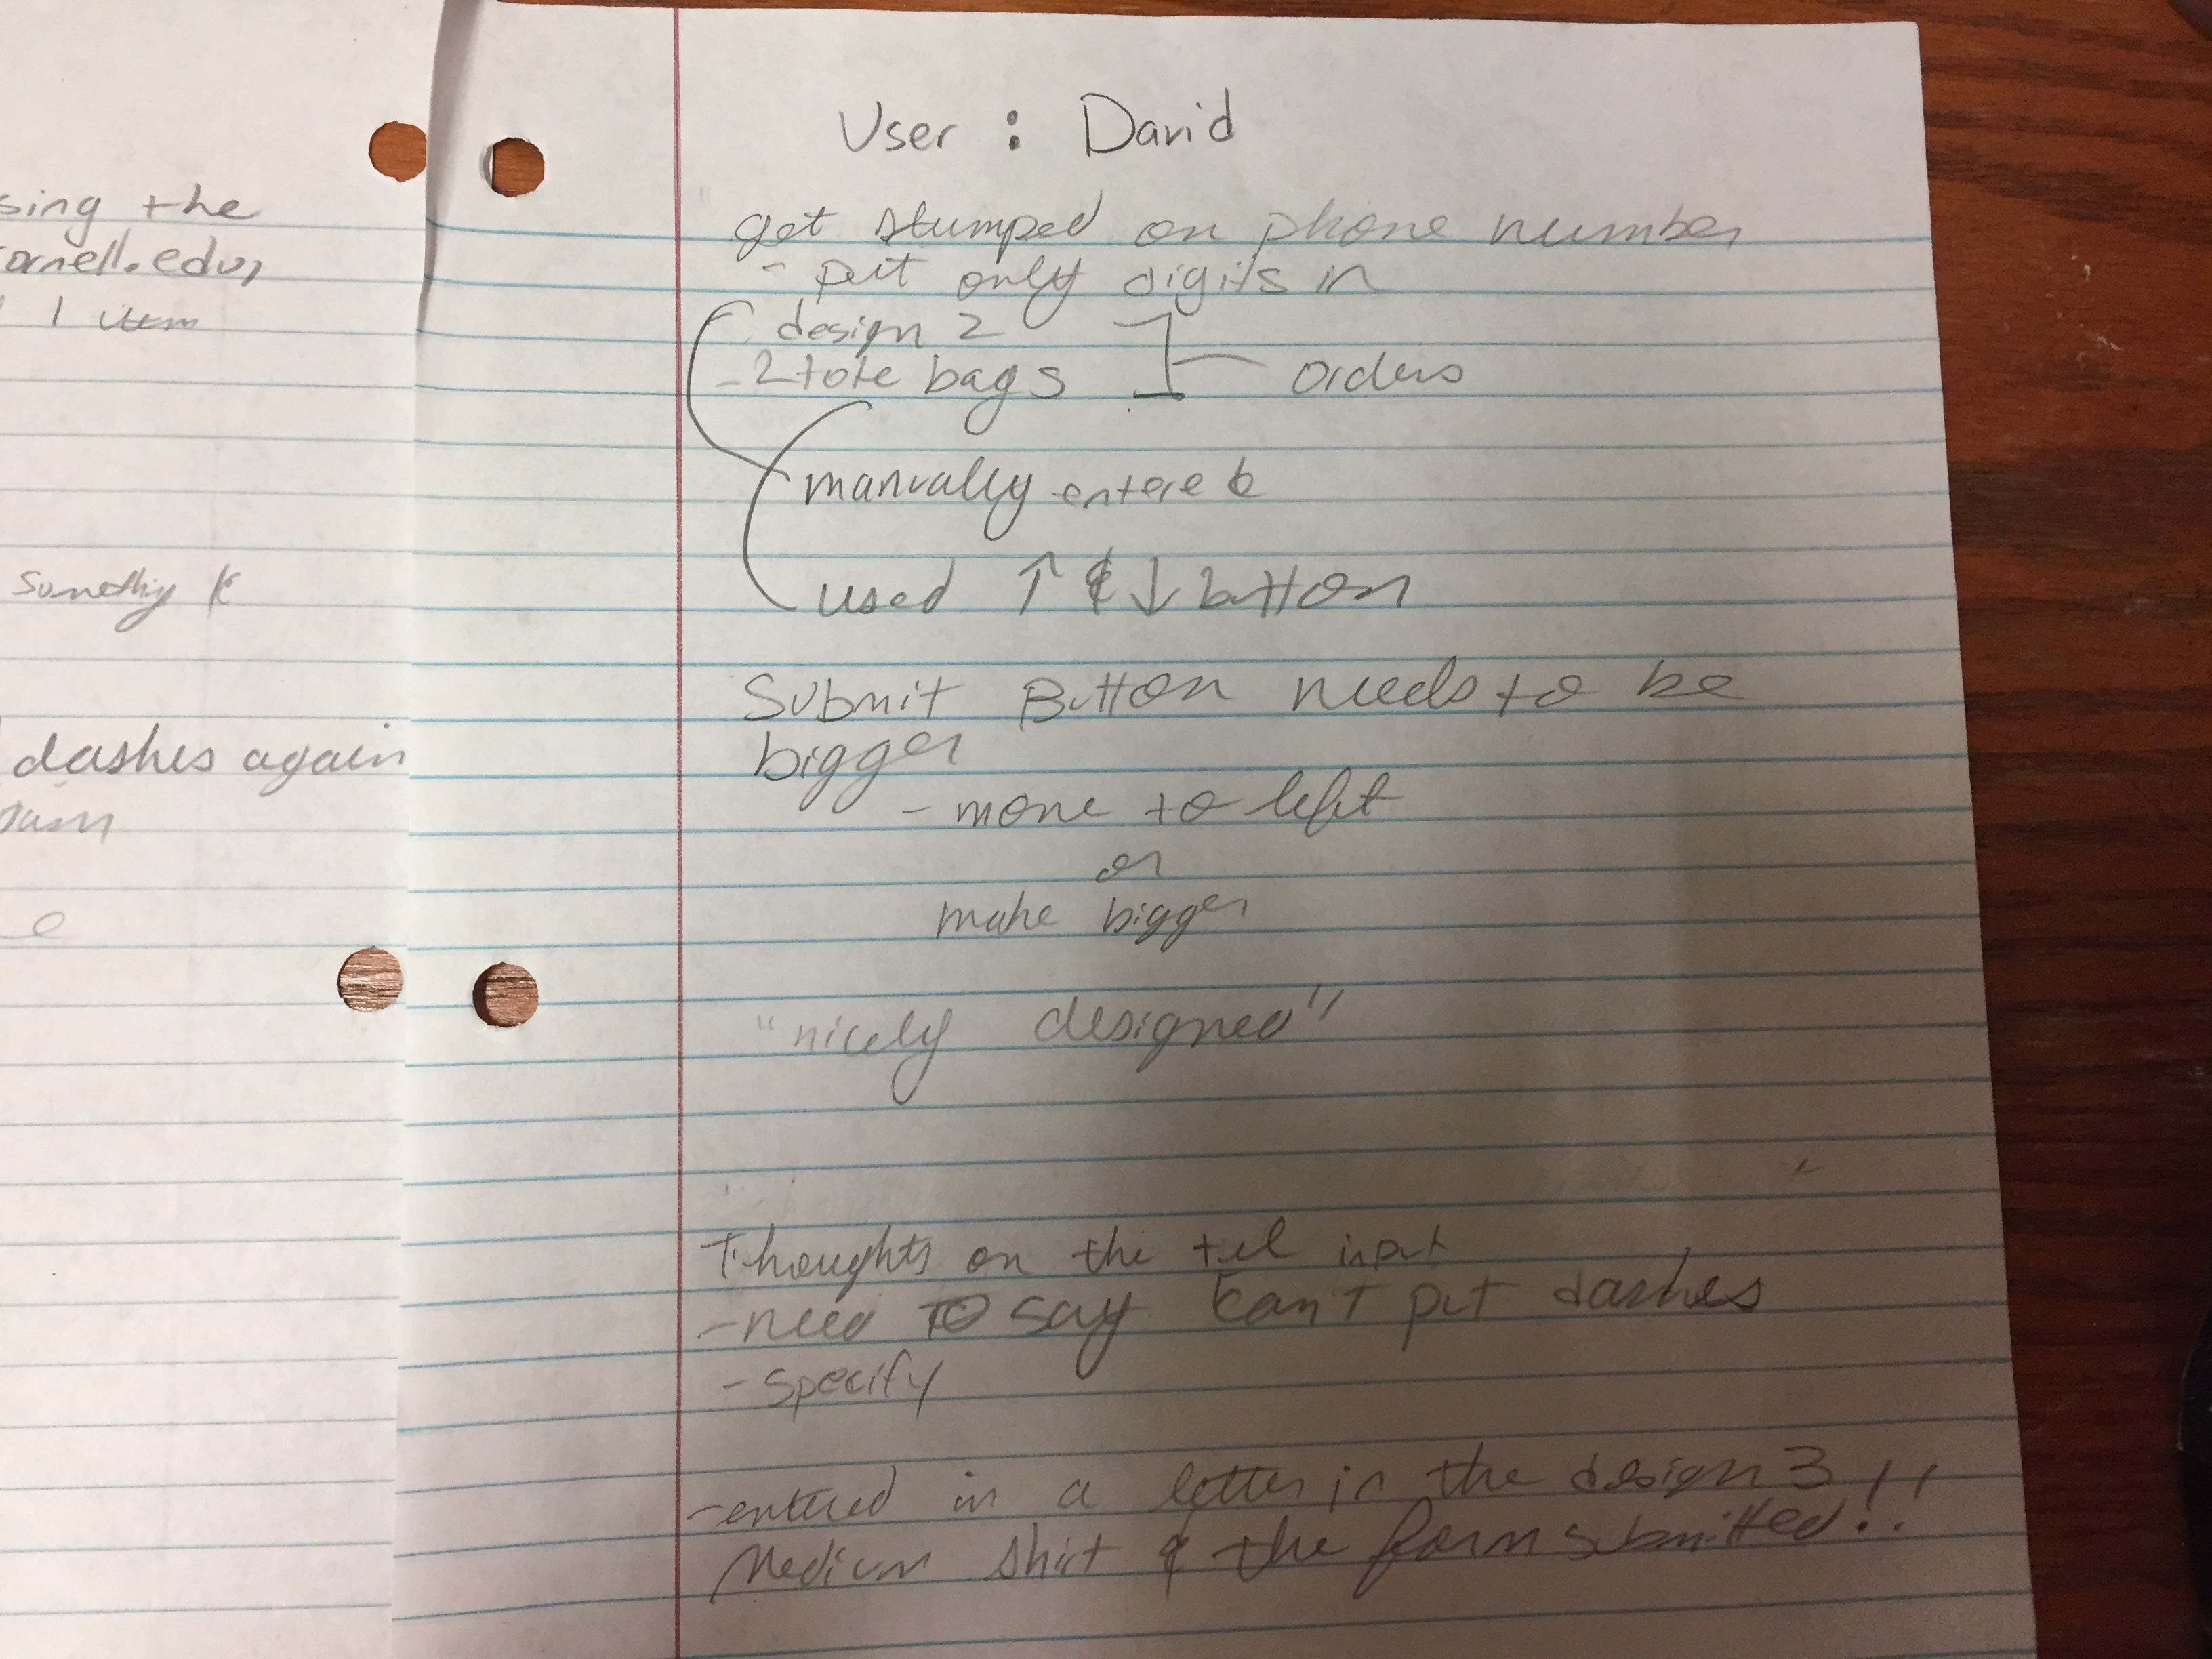 sing the
ornell.edu,
1 item
dashes again
User : David
get stumped on phone number
- put only digits in
design 2
- 2 tote bags
orders
manually entere
used ↑ & ↓ button
Submit Button needs to be
bigger
- move to left
or
make bigger
"nicely designed"
Thoughts on the tel input
- need TO say can't put dashes
- specify
- entered in a letter in the design 3 !!
Medium shirt & the form submitted!!